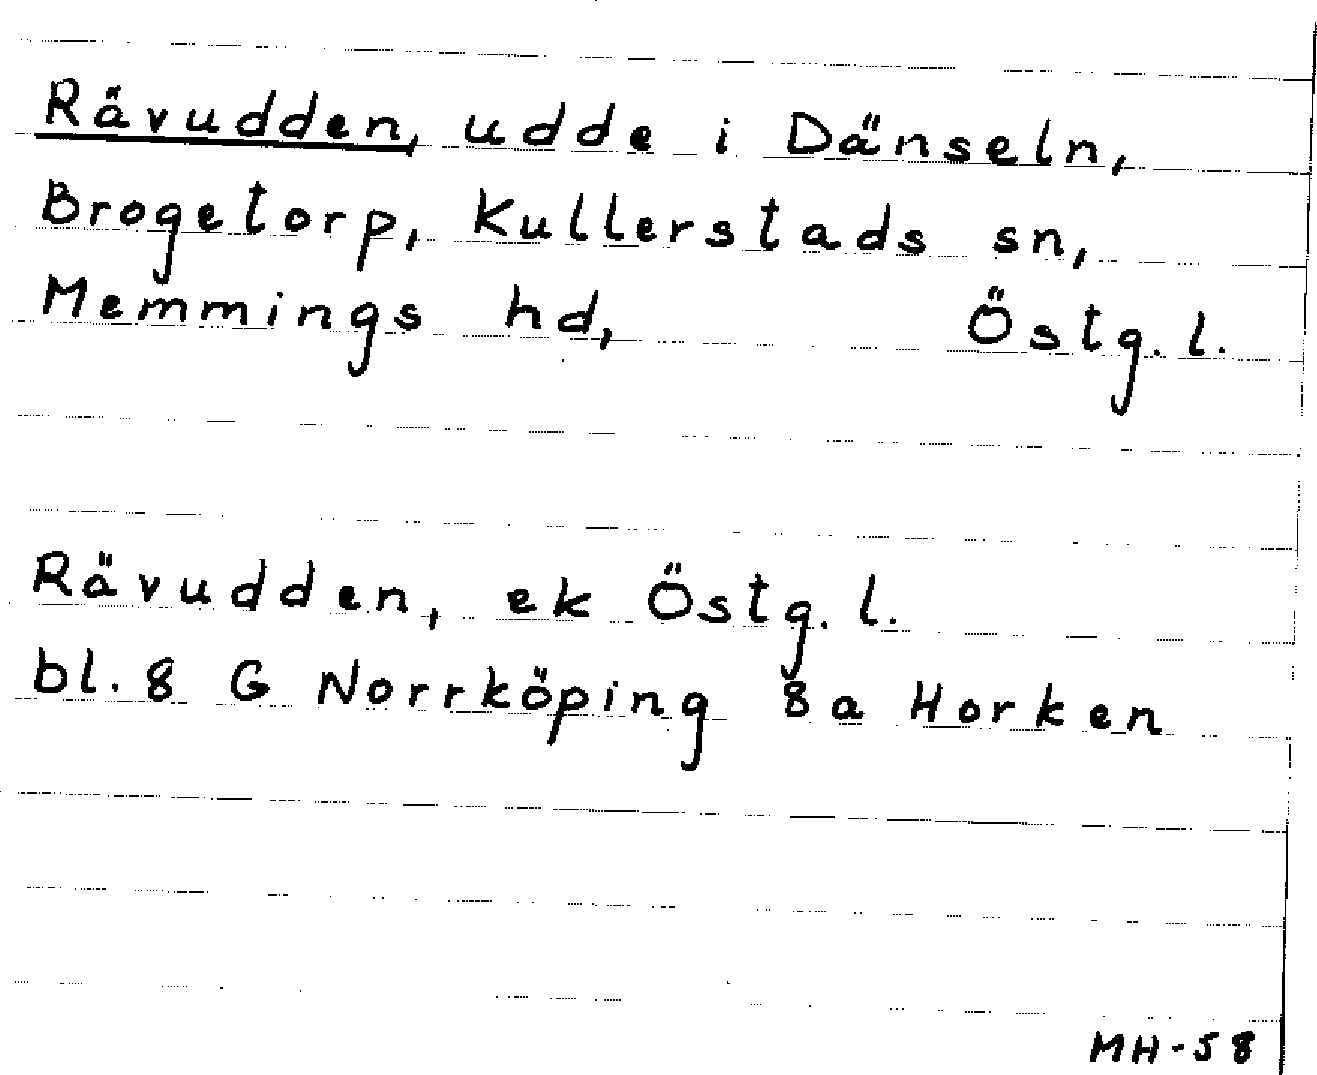 Rävudden, udde i Dänseln,
Brogetorp, Kullerstads sn,
Memmings hd, Östg. l.
Rävudden, ek Östg. l.
bl. 8 G Norrköping 8a Horken
MH-58